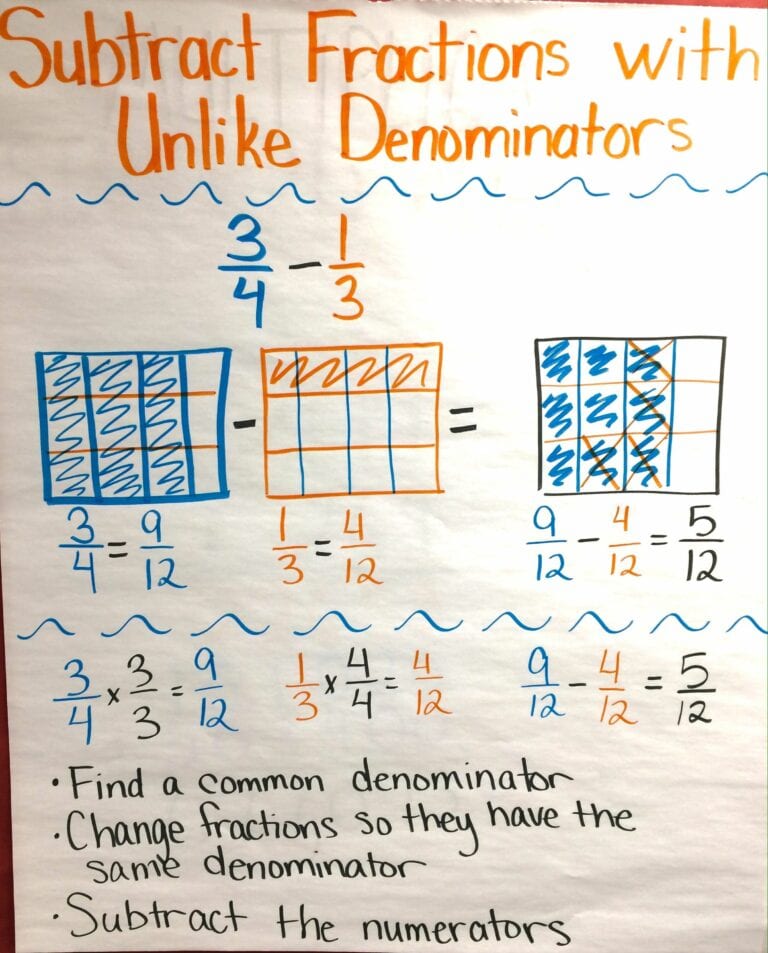 Subtract Fractions with
Unlike Denominators
3/4 - 1/3
- =
3/4 = 9/12 1/3 = 4/12 9/12 - 4/12 = 5/12
3/4 x 3/3 = 9/12 1/3 x 4/4 = 4/12 9/12 - 4/12 = 5/12
· Find a common denominator
· Change fractions so they have the
same denominator
· Subtract the numerators